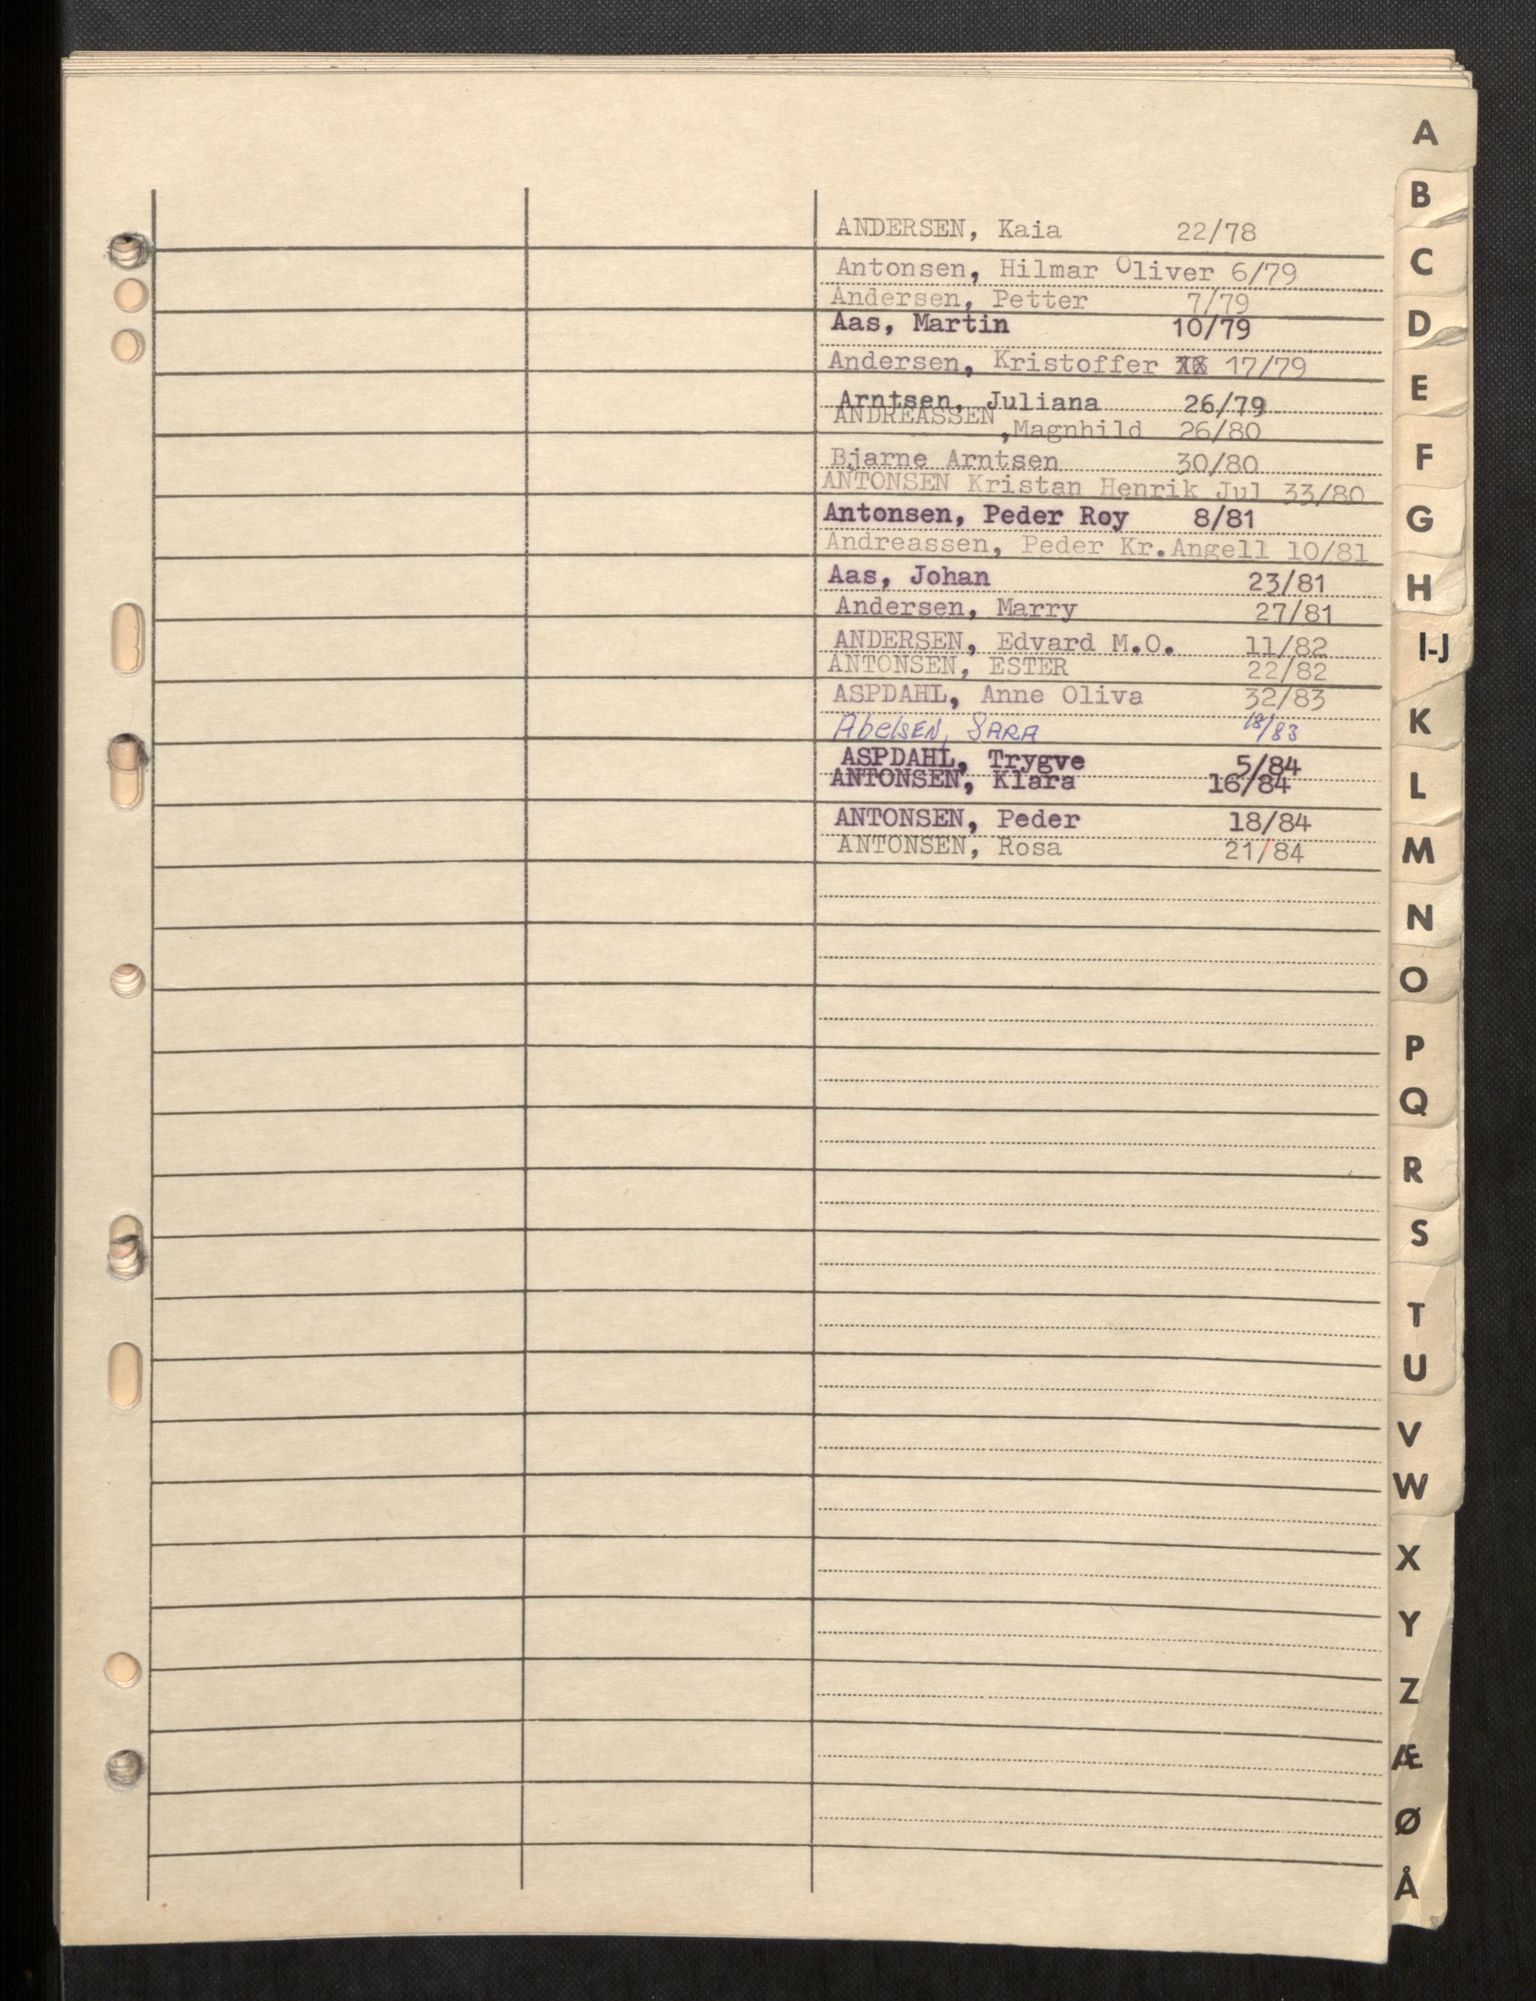 ANDERSEN, Kaia 22/78
Antonsen, Hilmar Oliver 6/79
Andersen, Petter 7/79
Aas, Martin 10/79
Andersen, Kristoffer 17/79
Arntsen, Juliana 26/79
ANDREASSEN ,Magnhild 26/80
Bjarne Arntsen 30/80
ANTONSEN Kristan Henrik Jul 33/80
Antonsen, Peder Roy 8/81
Andreassen, Peder Kr.Angell 10/81
Aas, Johan 23/81
Andersen, Marry 27/81
ANDERSEN, Edvard M.O. 11/82
ANTONSEN, ESTER 22/82
ASPDAHL, Anne Oliva 32/83
AbelSEN, SARA 18/83
ASPDAHL, Trygve 5/84
ANTONSEN, Klara 16/84
ANTONSEN, Peder 18/84
ANTONSEN, Rosa 21/84
A
B
C
D
E
F
G
H
I-J
K
L
M
N
O
P
Q
R
S
T
U
V
W
X
Y
Z
Æ
Ø
Å